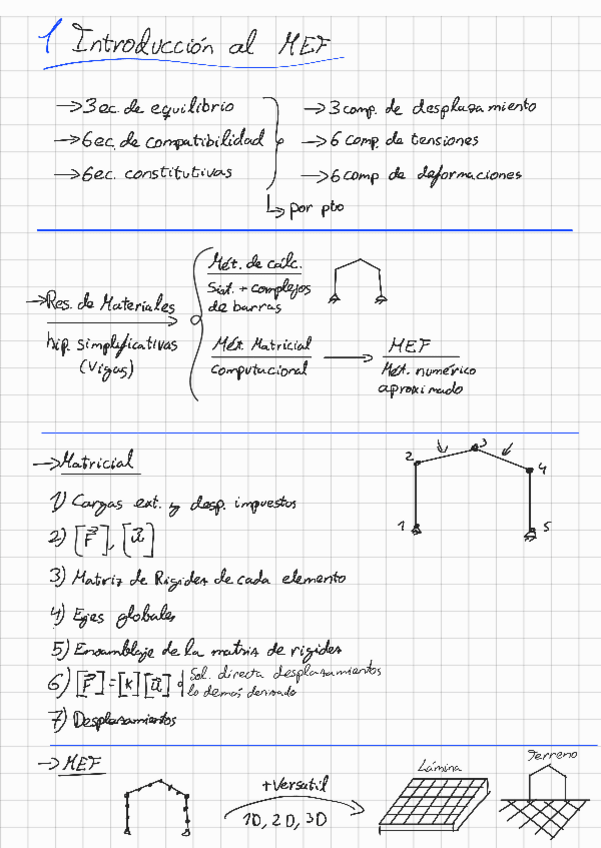 1 Introducción al MEF
→ 3 ec. de equilibrio
→ 6 ec. de compatibilidad
→ 6 ec. constitutivas
→ 3 comp. de desplazamiento
→ 6 comp. de tensiones
→ 6 comp de deformaciones
↳ por pto
→ Res. de Materiales
hip. simplificativas
(Vigas)
Mét. de cálc.
Sist. + complejos
de barras
Mét. Matricial
computacional
→ MEF
Mét. numérico
aproximado
→ Matricial
1) Cargas ext. y desp. impuestos
2) [F⃗], [u⃗]
3) Matriz de Rigidez de cada elemento
4) Ejes globales
5) Ensamblaje de la matriz de rigidez
6) [F⃗] = [K] [u⃗] Sol. directa desplazamientos
lo demás derivado
7) Desplazamientos
1
2
3
4
5
→ MEF
+ Versatil
1D, 2D, 3D
Lámina
Terreno